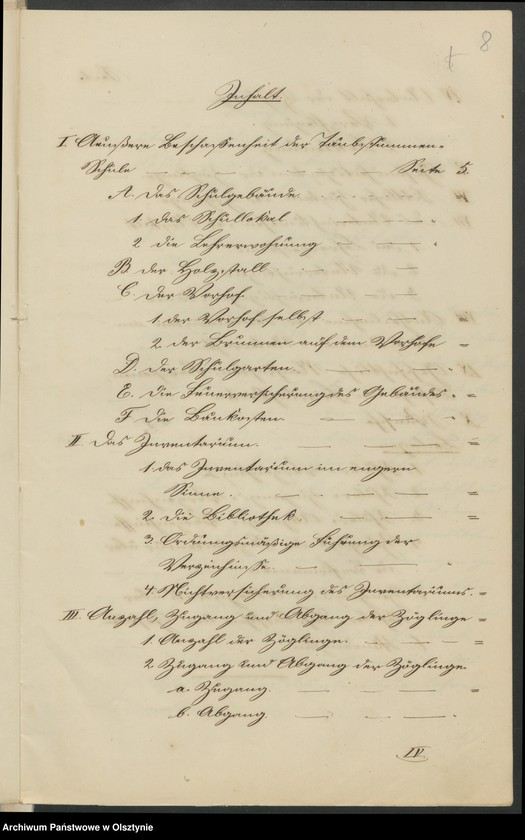 8
Inhalt.
I. Aeußere Beschaffenheit der Taubstummen-
Schule — Seite 5.
A. Das Schulgebäude.
1. das Schullokal
2. die Lehrerwohnung
B der Holzstall
C. der Vorhof
1. der Vorhof selbst
2. der Brunnen auf dem Vorhofe =
D. der Schulgarten.
E. die Feuerversicherung des Gebäudes. =
F die Baukosten.
II Das Inventarium. =
1. das Inventarium im engern
Sinne. =
2. die Bibliothek. =
3. Ordnungsmäßige Führung der
Verzeichnisse
4. Nichtversicherung des Inventariums. =
III. Anzahl, Zugang und Abgang der Zöglinge =
1. Anzahl der Zöglinge. =
2. Zugang und Abgang der Zöglinge.
a. Zugang. =
b. Abgang.
IV
Archiwum Państwowe w Olsztynie